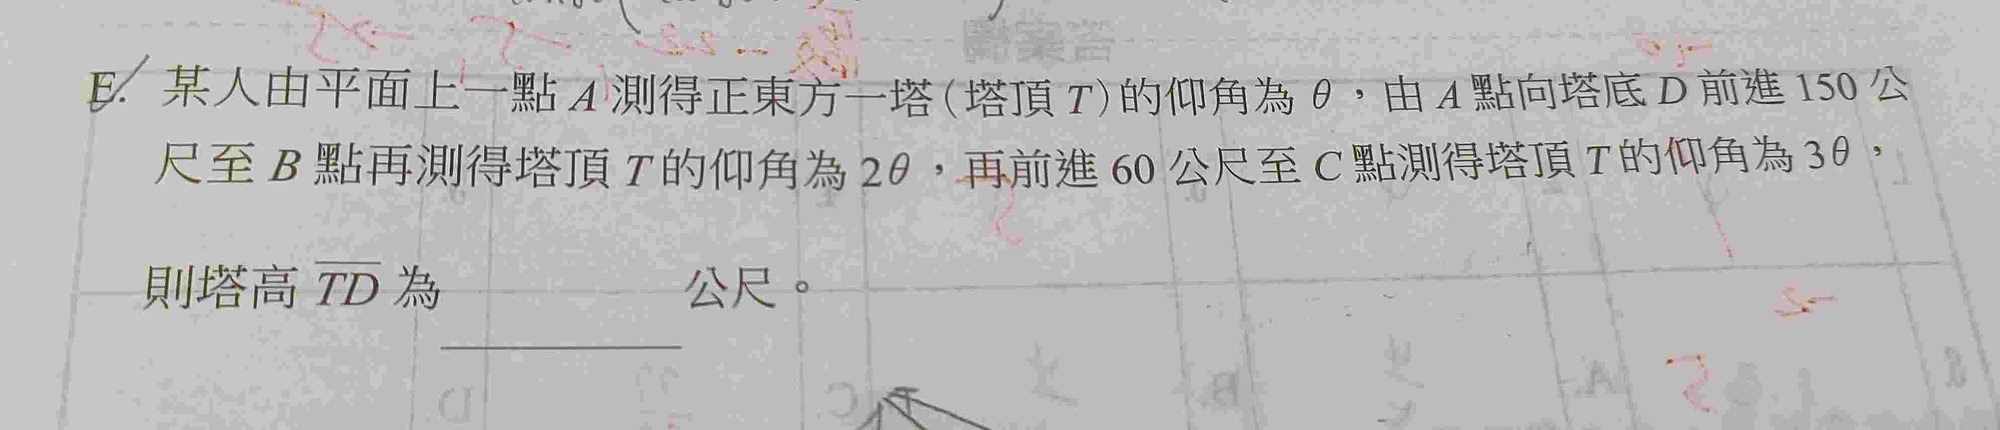 E. 某人由平面上一點 A 測得正東方一塔(塔頂 T)的仰角為 θ,由 A 點向塔底 D 前進 150 公
尺至 B 點再測得塔頂 T 的仰角為 2θ,再前進 60 公尺至 C 點測得塔頂 T 的仰角為 3θ,
則塔高 TD 為 公尺。